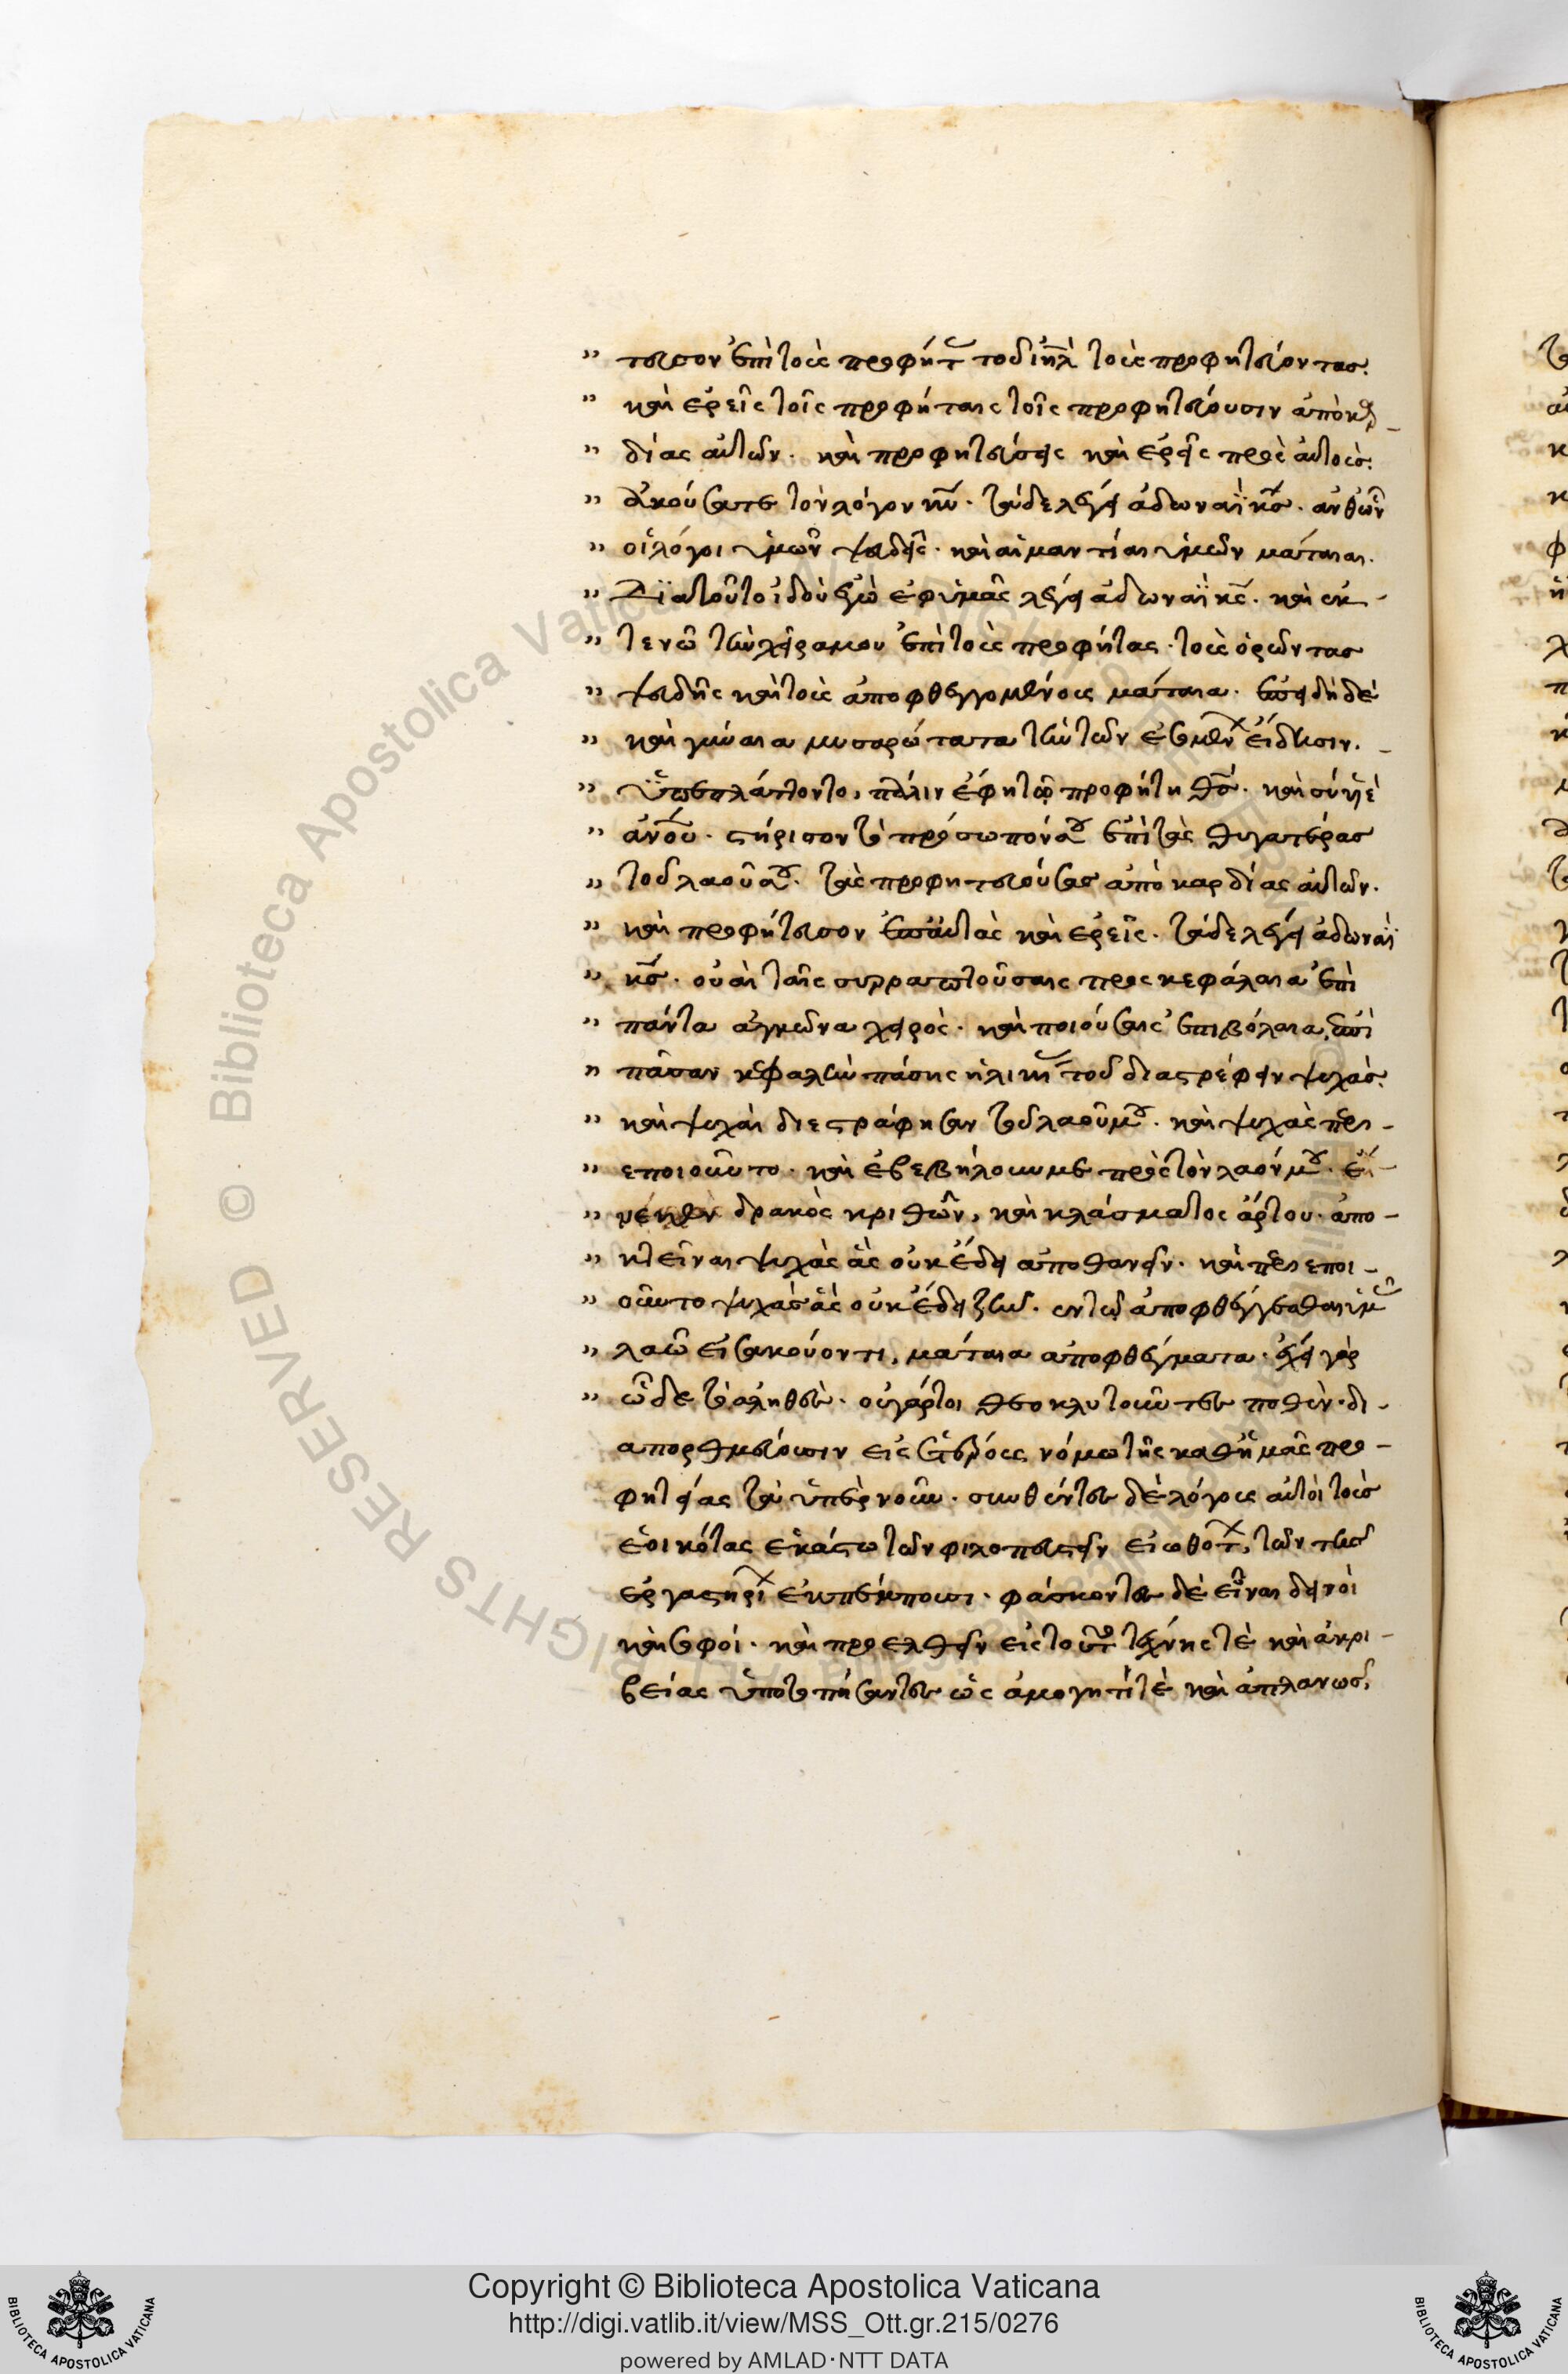 " τευσον ἐπὶ τοὺς προφήτ τοῦ ιηλ τοὺς προφητεύοντας.
" καὶ ἐρεῖς τοῖς προφήταις τοῖς προφητεύουσιν ἀπὸ καρ-
" δίας αὐτῶν. καὶ προφητεύσεις καὶ ἐρεῖς πρὸς αὐτούς.
" ἀκούσατε τὸν λόγον κυ. τάδε λέγει ἀδωναῒ κς. ἀνθ ὧν
" οἱ λόγοι ὑμῶν ψευδεῖς. καὶ αἱ μαντίαι ὑμῶν μάταιαι.
" Διατοῦτο ἰδοὺ ἐγὼ ἐφ ὑμᾶς λέγει ἀδωναῒ κς. καὶ ἐκ-
" τενῶ τὴν χεῖρα μου ἐπὶ τοὺς προφήτας. τοὺς ὁρῶντας
" ψευδῆς καὶ τοὺς ἀποφθεγγομένους μάταια. ἐπειδὴ δὲ
" καὶ γύναια μυσαρώτατα τὴν τῶν ἐσμὲν εἴδησιν.
" ὑπεπλάττοντο, πάλιν ἔφη τῷ προφήτη θς. καὶ σὺ υἱὲ
" ανου. στήρισον τὸ πρόσωπόν σου ἐπὶ τὰς θυγατέρας
" τοῦ λαοῦ σου. τὰς προφητευούσας ἀπὸ καρδίας αὐτῶν.
" καὶ προφήτευσον ἐπ αὐτὰς καὶ ἐρεῖς. τάδε λέγει ἀδωναῒ
" κς. οὐαὶ ταῖς συρραπτούσαις προς κεφάλαια ἐπὶ
" πάντα ἀγκῶνα χειρὸς. καὶ ποιούσαις ἐπιβόλαια, ἐπὶ
" πᾶσαν κεφαλὴν πάσης ἡλικι τοῦ διαστρέφειν ψυχάς.
" καὶ ψυχαὶ διεστράφησαν τοῦ λαοῦ μου. καὶ ψυχὰς περι-
" εποιοῦντο. καὶ ἐβεβήλουν με πρὸς τὸν λαόν μου.
" δρακὸς κριθῶν, καὶ κλάσματος ἄρτου. ἀπο-
" κτεῖναι ψυχὰς ἃς οὐκ ἔδει ἀποθανεῖν. καὶ περιεποι-
" οῦντο ψυχάς ἃς οὐκ ἔδει ζῆν. ἐν τῷ ἀποφθέγγεσθαι ὑμ
" λαῶ εἰσακούοντι, μάταια ἀποφθέγματα. ἔχει γὰρ
" ὧδε τὸ ἀληθὲς. οὐ γάρ τοι θεοκλυτοῦντες ποθὲν. δι-
απορθμεύουσιν εἰς ἑτέρους νόμω τῆς καθ ἡμᾶς προ-
φητείας τὰ ὑπὲρ νοῦν. συνθέντες δὲ λόγους αὐτοὶ τοὺς
ἐοικότας ἑκάστω τῶν φιλοπευστεῖν εἰωθοτ, τῶν τῆς
ἐργαστηρι ἐκπέμπουσι. φάσκοντες δὲ εἶναι δεινοὶ
καὶ σοφοί. καὶ προελθεῖν εἰς τοῦτο τέχνης τὲ καὶ ἀκρι-
βείας ὑποτοπήσαντες ὡς ἀμογητί τὲ καὶ ἀπλανως,
Copyright © Biblioteca Apostolica Vaticana
http://digi.vatlib.it/view/MSS_Ott.gr.215/0276
powered by AMLAD·NTT DATA